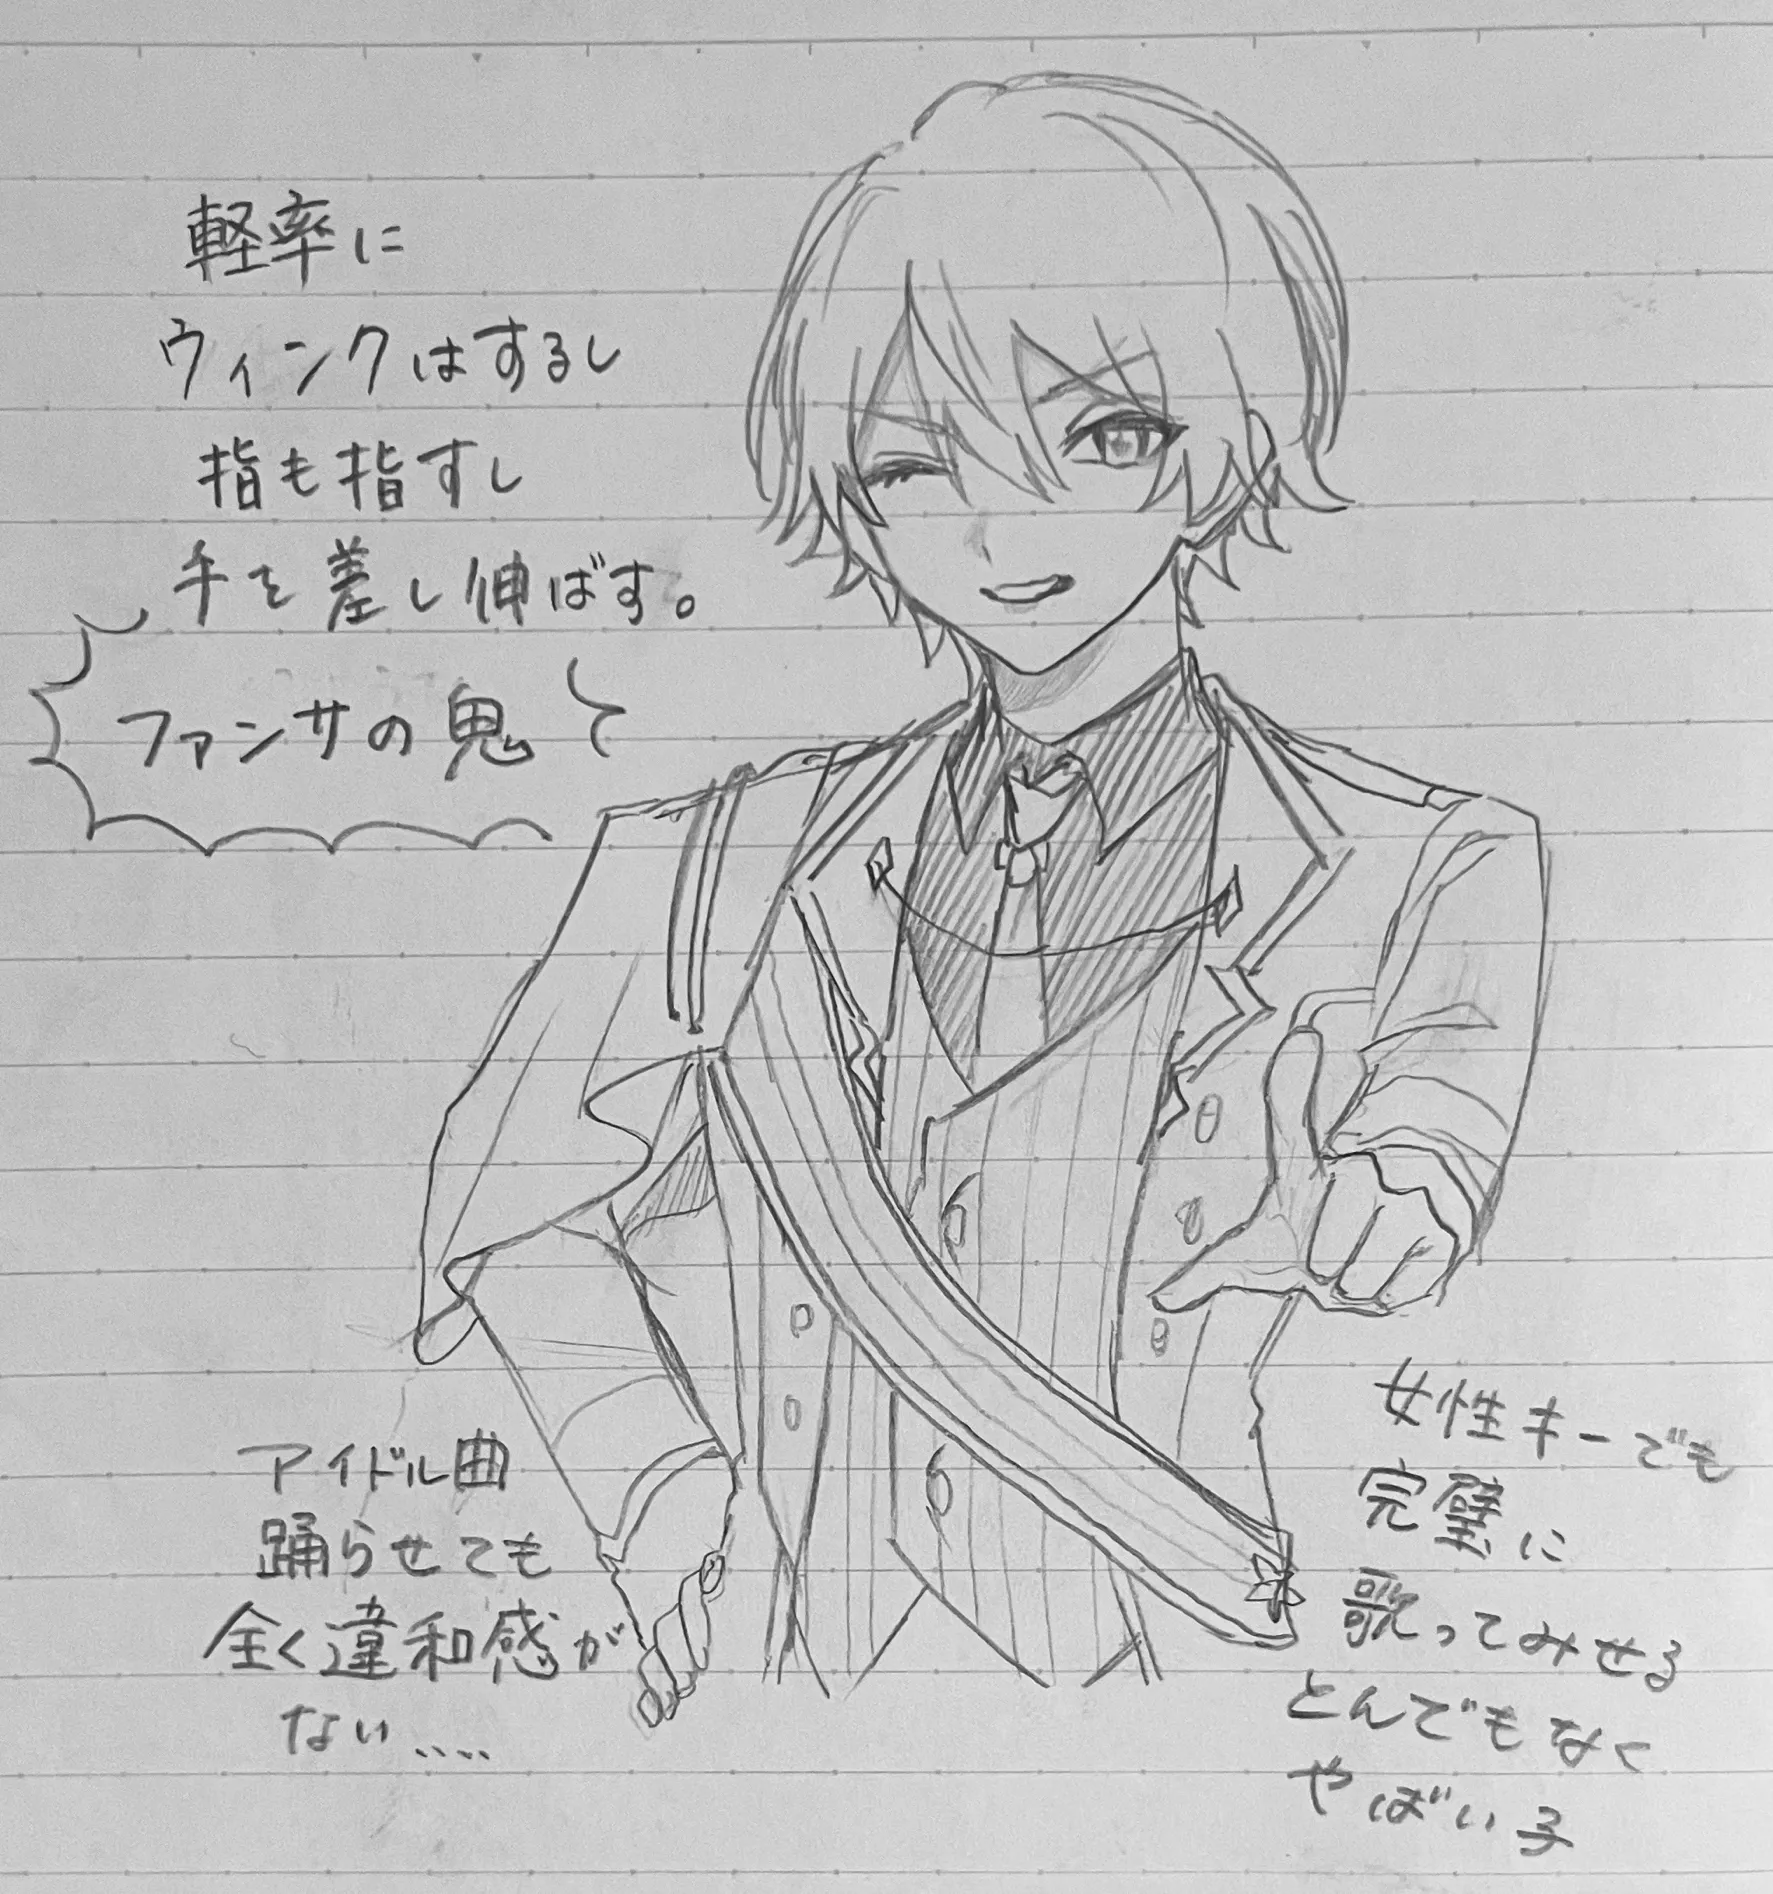 軽率に
ウィンクはするし
指も指すし
手を差し伸ばす。
ファンサの鬼
アイドル曲
踊らせても
全く違和感が
ない....
女性キーでも
完璧に
歌ってみせる
とんでもなく
やばい子